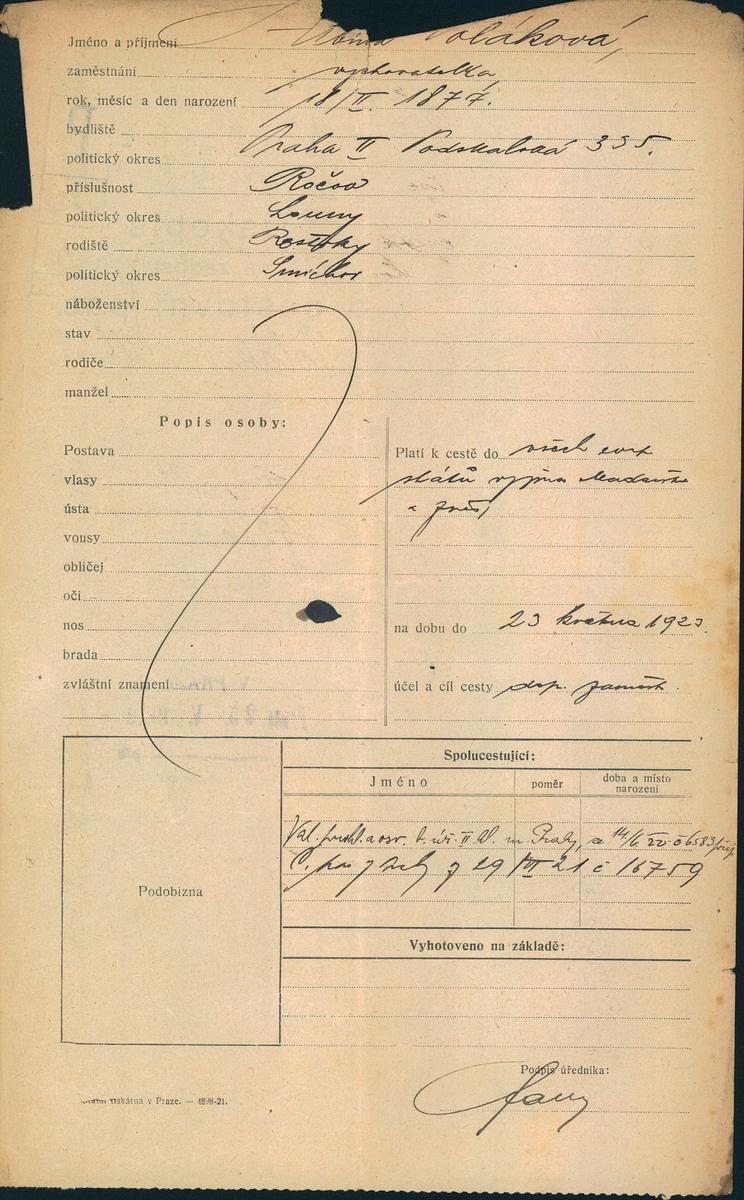 Jméno a příjmení Poláková,
zaměstnání vychovatelka
rok, měsíc a den narození 18/II. 1877.
bydliště
politický okres Praha II Podskalská 355.
příslušnost Ročov
politický okres Louny
rodiště Roztoky
politický okres Smíchov
náboženství
stav
rodiče
manžel
Popis osoby:
Postava
vlasy
ústa
vousy
obličej
oči
nos
brada
zvláštní znamení
Platí k cestě do všech evr.
států vyjma Maďarska
na dobu do 23 května 192
účel a cíl cesty
Podobizna
Spolucestující:
Jméno poměr doba a místo narození
č 6583
29/VI 21 č 16759
Vyhotoveno na základě:
Podpis úředníka:
tiskárna v Praze. — 4898-21.